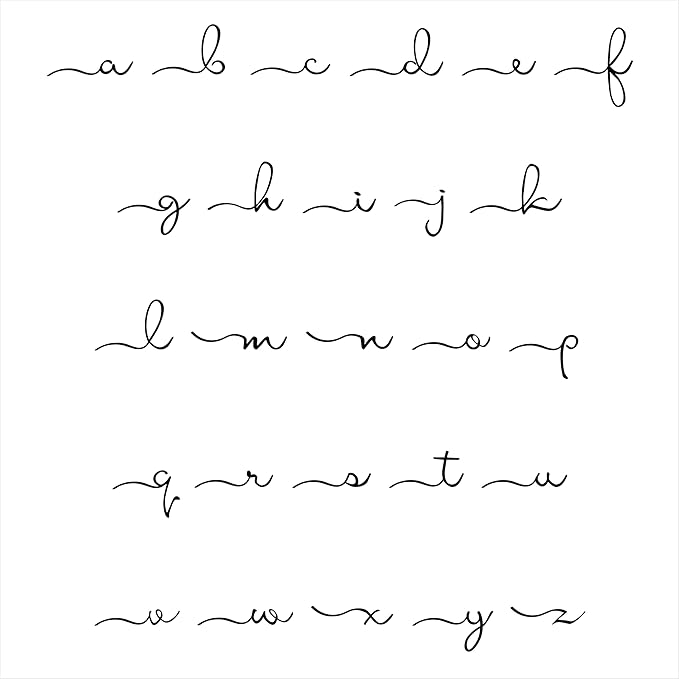 a b c d e f
g h i j k
l m n o p
q r s t u
v w x y z